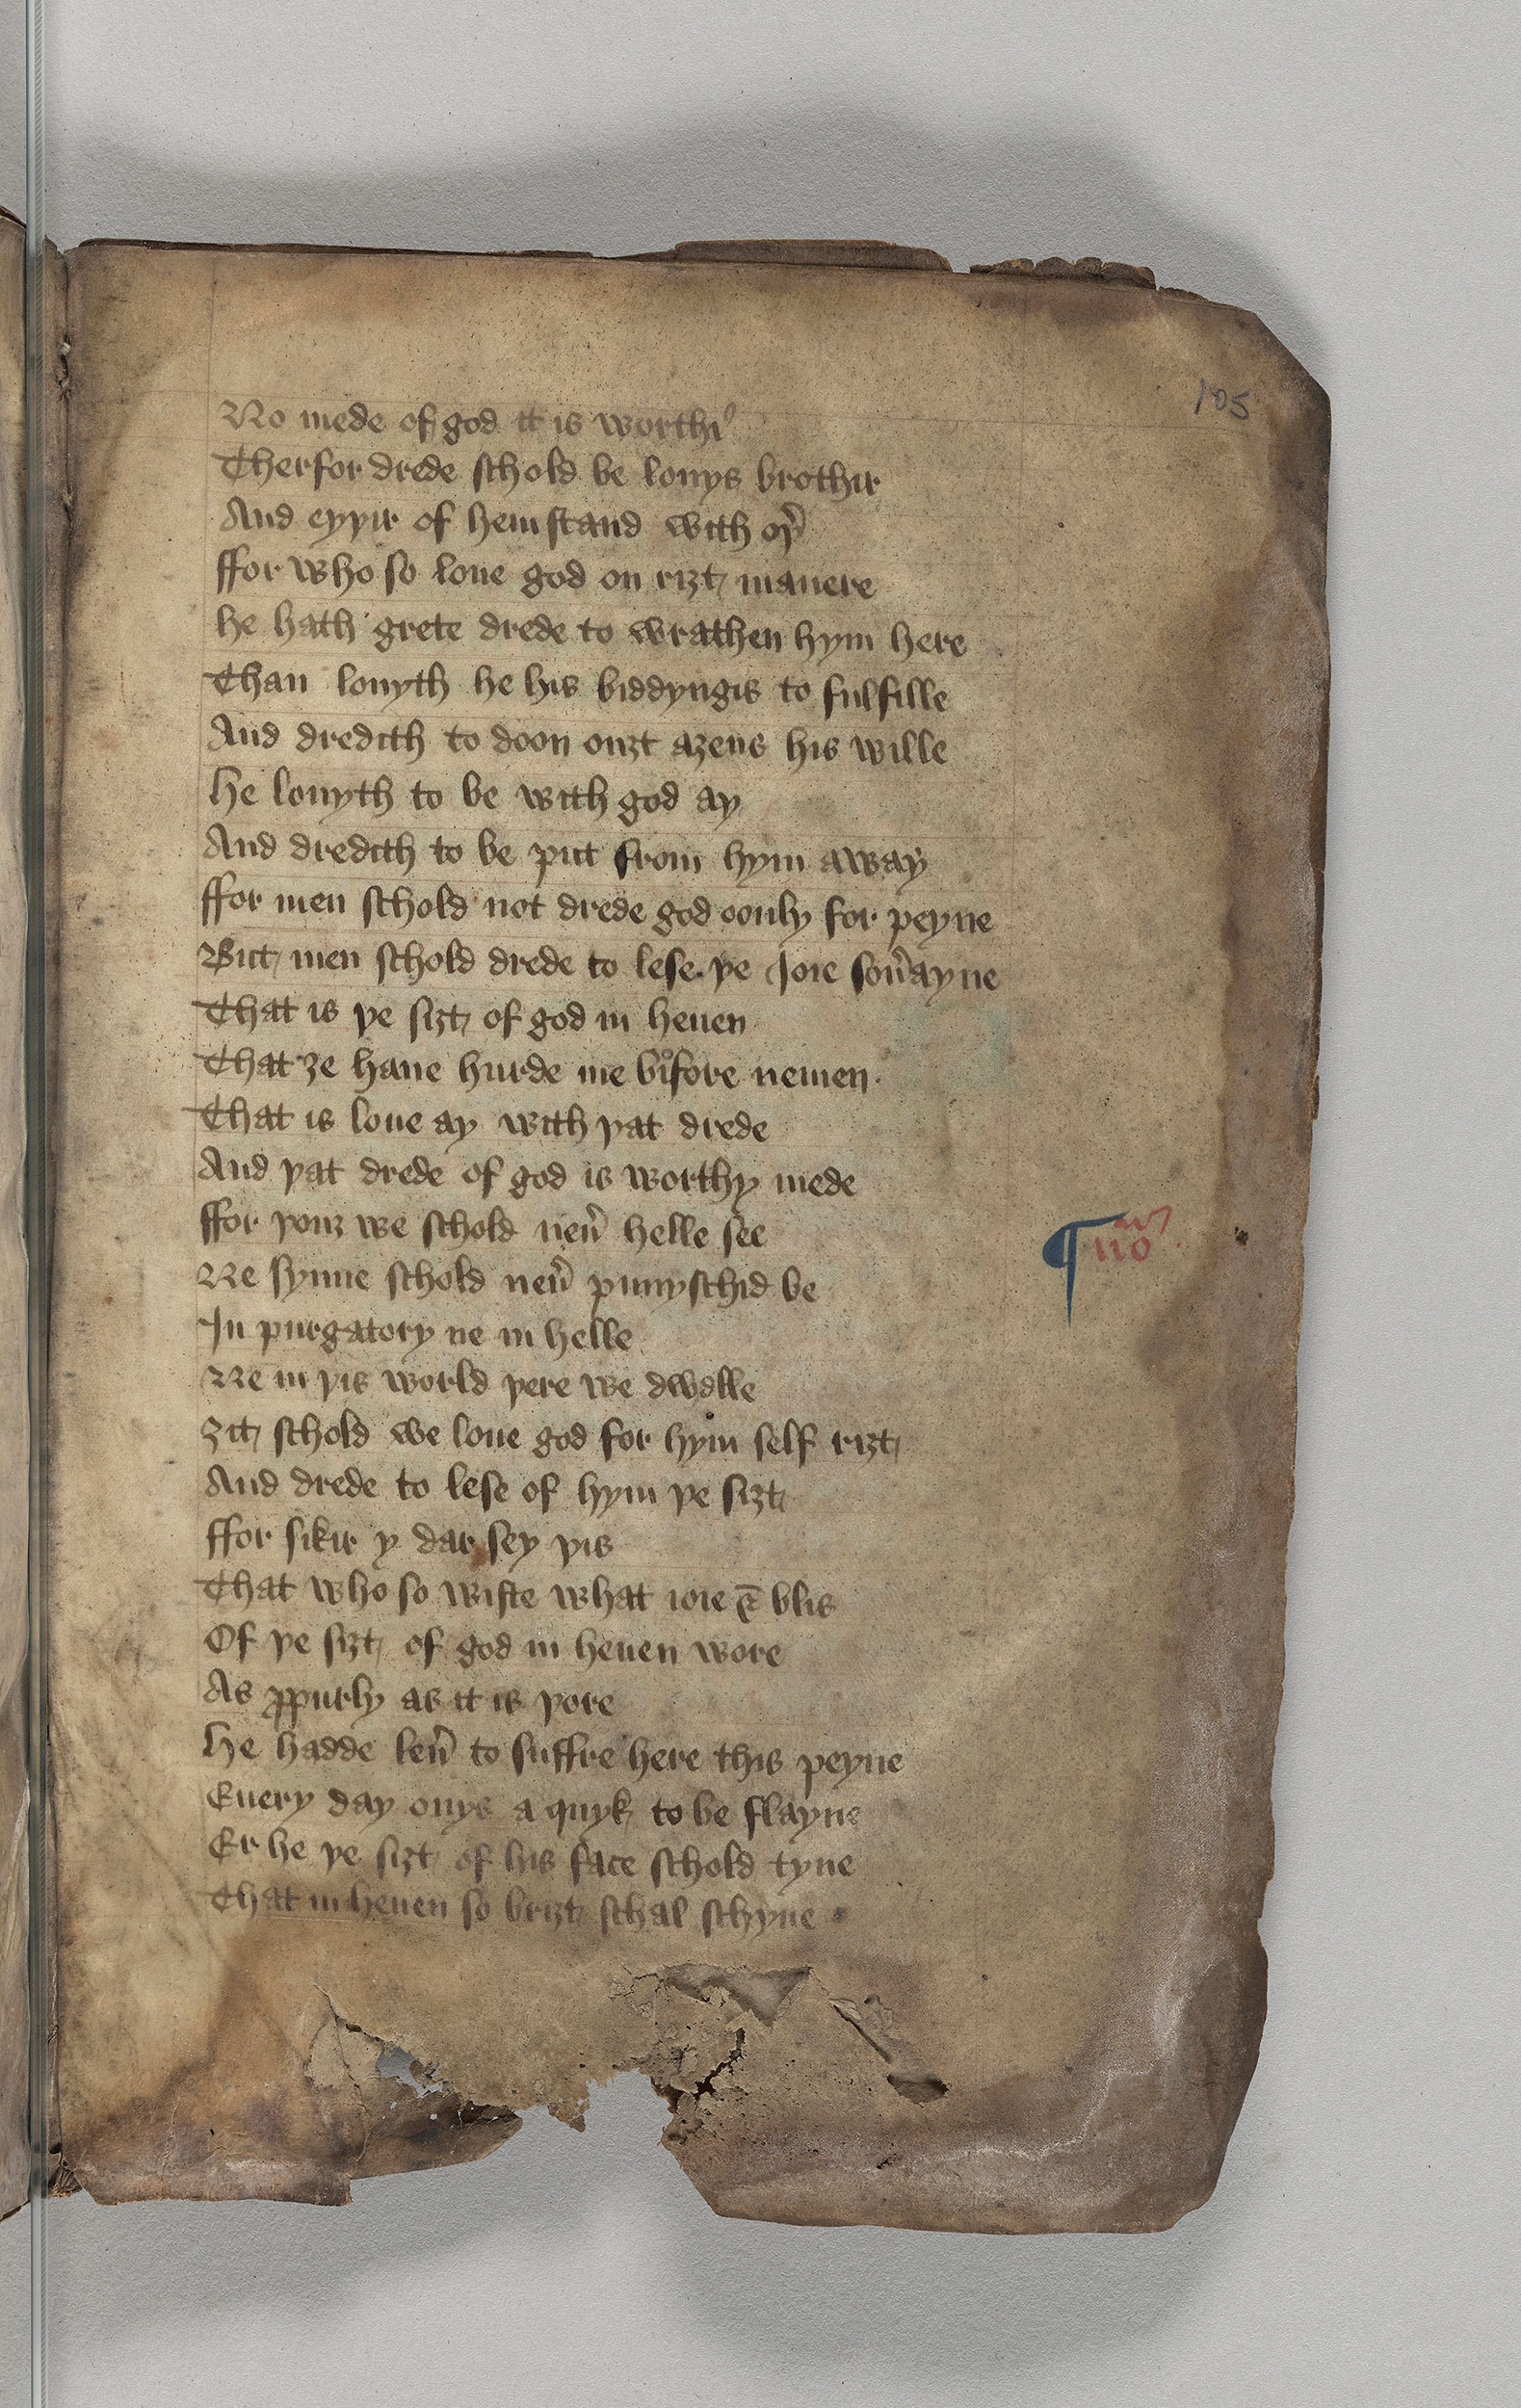 105
No mede of god it is worthi
Therfor drede schold be louys brothir
And eyþir of hem stand with oþ̾
ffor who so loue god on riȝt manere
he hath grete drede to wrathen hym here
Than louyth he his biddyngis to fulfille
And dredith to doon ouȝt aȝens his wille
He louyth to be with god ay
And dredith to be put from hym away
ffor men schold not drede god oonly for peyne
But men schold drede to lese þe Joie sou̾ayne
That is þe siȝt of god in heuen
That ȝe haue hurde me bifore nemen
That is loue ay with þat drede
And þat drede of god is worthy mede
ffor þouȝ we schold neu̾ helle see
no
Ne synne schold neu̾ punyschid be
In purgatory ne in helle
Ne in þis world þere we dwelle
Ȝit schold we loue god for hym self riȝt
And drede to lese of hym þe siȝt
ffor sikir y dar sey þis
That who so wiste what ioie ⁊ blis
Of þe siȝt of god in heuen wore
As ꝓpurly as it is þore
He hadde leu̾ to suffre here this peyne
Euery day onys a quyk to be flayne
Er he þe siȝt of his face schold tyne
That in heuen so briȝt schal schyne